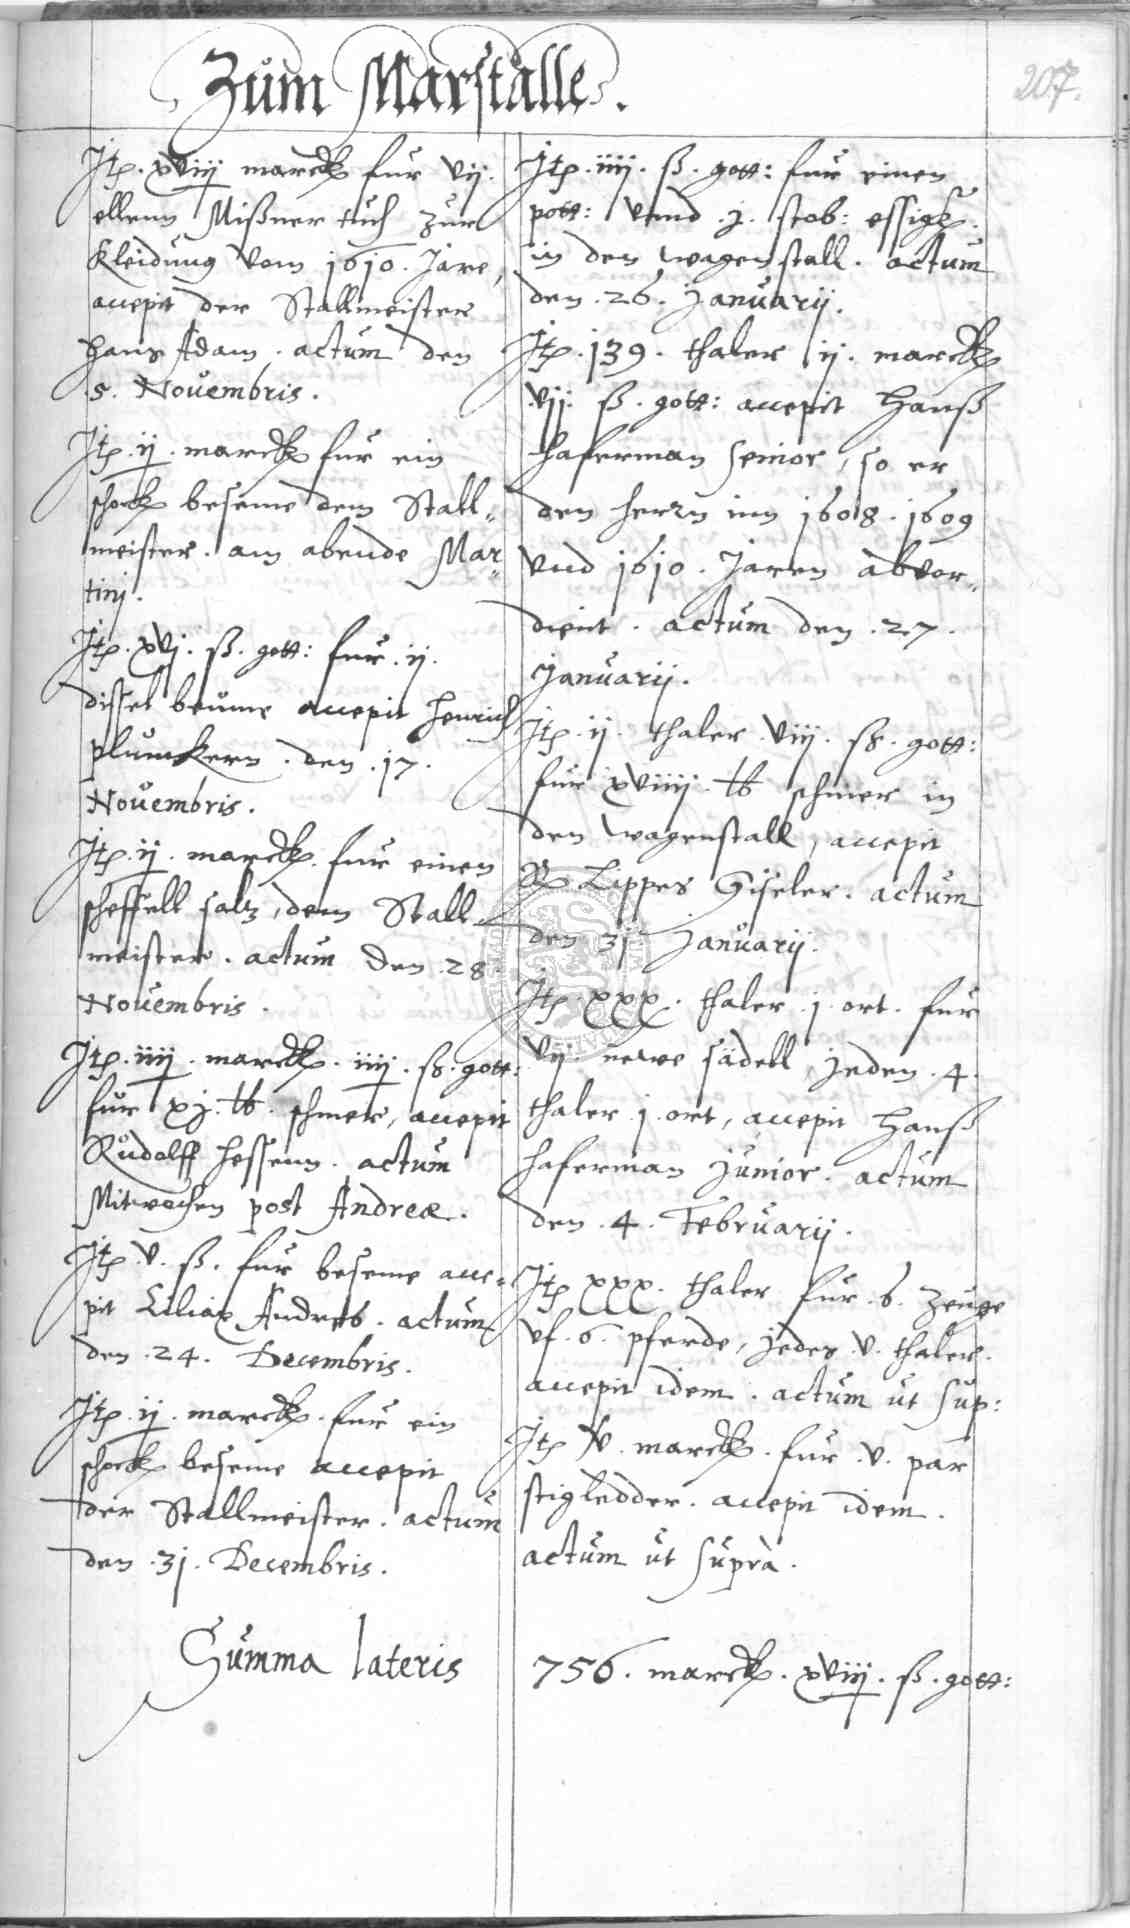 Zum Marstalle.
207.
Jtem. xviij marck fur vij.
ellenn Mißner tuch zur
Kleidung vom 1610. Jare,
accepit der Stallmeister
Hans Adam. actum den
.5. Novembris.
Jtem. ij. marck fur ein
schock beseme dem Stall„
meister. am abende Mar„
tinj.
Jtem. xvj. ß. gott: fur .ij.
dissel beume accepit Henrich
plumkern. den .17.
Novembris.
Jtem. ij. marck. fur einen
scheffell saltz, dem Stall„
meister. actum den .28.
Novembris.
Jtem. iiij. marck. iiij. ß. gott:
fur xj. lb. schmer, accepit
Rudolff Hessenn. actum
Mitwochen post Andreæ.
Jtem v. ß. fur beseme acce„
pit Andres. actum
den .24. Decembris.
Jtem. ij. marck. fur ein
schock beseme accepit
der Stallmeister. actum
den .31. Decembris.
Jtem. iiij. ß. gott: fur einen
pott: vnnd .j. stob: essigk.
in den wagenstall. actum
den .26. Januarij.
Jtem. 139. thaler ij. marck
vij. ß. gott: accepit Hanß
Haferman Senior, so er
den herrn inn 1608. 1609
vnd 1610. Jaren abver„
dient. actum den .27.
Januarij.
Jtem. ij. thaler viij. ß. gott:
fur xviiij. lb schmer in
den wagenstall, accepit
Lippes Giseler. actum
den 31 Januarij.
Jtem. xxx. thaler .j. ort. fur
vij. newe sädell, jeden .4.
thaler .j. ort, accepit Hanß
Haferman Junior. actum
den .4. Februarij.
Jtem xxx. thaler fur .6. zeuge
vf .6. pferde, jedes .v. thaler.
accepit idem. actum ut sup:
Jtem v. marck. fur .v. par
stigledder. accepit idem.
actum ut suprà.
Summa lateris 756. marck. xviij. ß. gott: